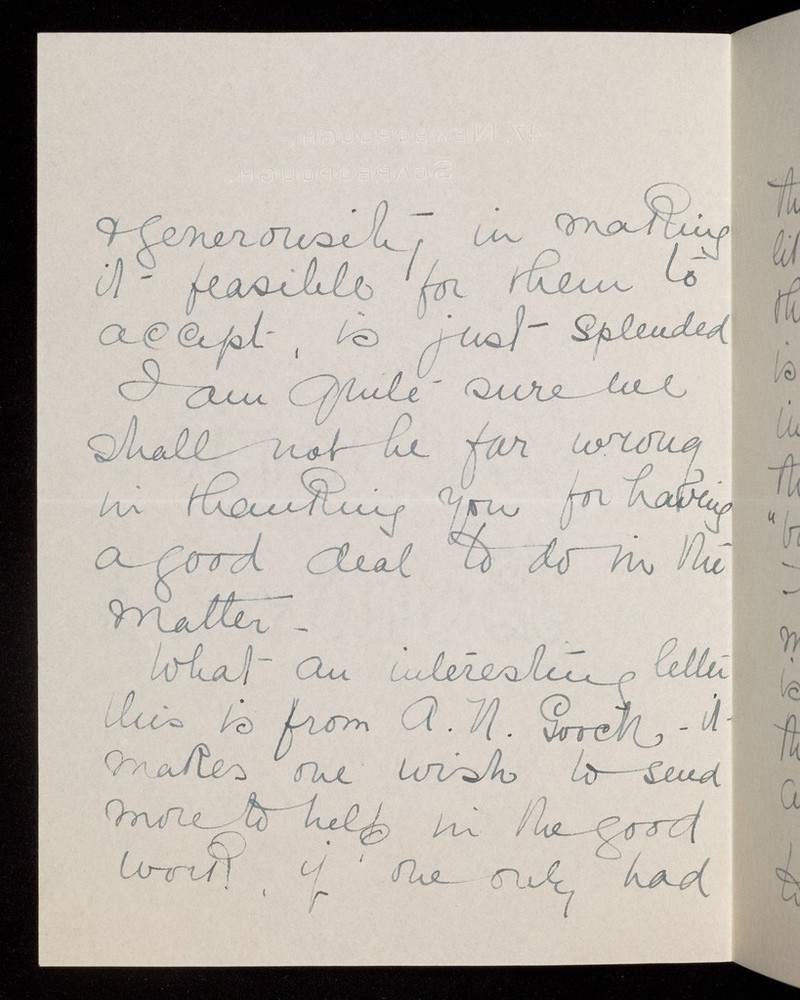 & generousity, in making
it feasible for them to
accept, is just splended
I am quite sure we
shall not be far wrong
in thanking you for having
a good deal to do in the
matter -
What an interesting letter
this is from A. N. Gooch, - it
makes one wish to send
more to help in the good
work, if one only had